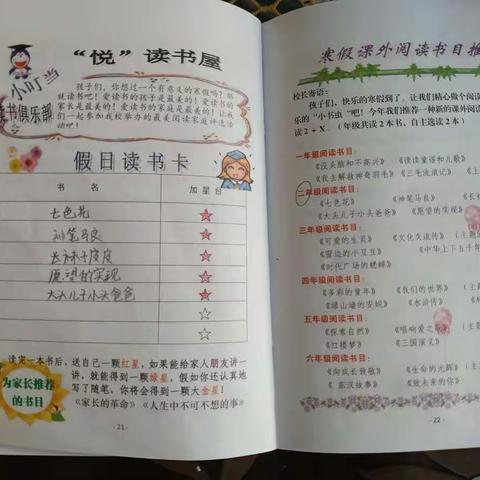 “悦”读书屋
小叮当
读书俱乐部
孩子们，你想过一个有意义的寒假吗？那
就读书吧！爱读书的孩子是最美的！爱读书的
家长是最美的！爱读书的家庭是最美的！让我
们一起参加我校举办的最美阅读家庭评选活
动吧！
假日读书卡
书 名 加星台
七色花
神笔马良
长袜子皮皮
愿望的实现
大头儿子小头爸爸
读完一本书后，送自己一颗红星，如果能给家人朋友讲一
讲，就能得到一颗绿星，假如你还认真地
写了随笔，你将会得到一颗大金星！
为家长推荐
的书目
《家长的革命》《人生中不可不想的事》
· 21 ·
寒假课外阅读书目推
校长寄语：
孩子们，快乐的寒假到了。让我们精心做个阅读
乐的“小书虫”吧！今年我们推荐一种新的课外阅读
读2+X。（年级共读2本书、自主选读2本）
一年级阅读书目：
《没头脑和不高兴》 《读读童谣和儿歌》
《我去解救神奇羽毛》《三毛流浪记》
二年级阅读书目：
《七色花》 《神笔马良》
《大头儿子小头爸爸》 《愿望的实现》
三年级阅读书目：
《可爱的生灵》 《文化久流传》
《窗边的小豆豆》 《中华上下五千年
《时代广场的蟋蟀》
四年级阅读书目：
《多彩的童年》 《我们的世界》
《绿山墙的安妮》 《水浒传》
五年级阅读书目：
《探索自然》 《唱响爱之歌》
《红楼梦》 《三国演义》
六年级阅读书目：
《向成长致敬》 《生命的光辉》
《东汉故事》 《致未来的你》
· 22 ·